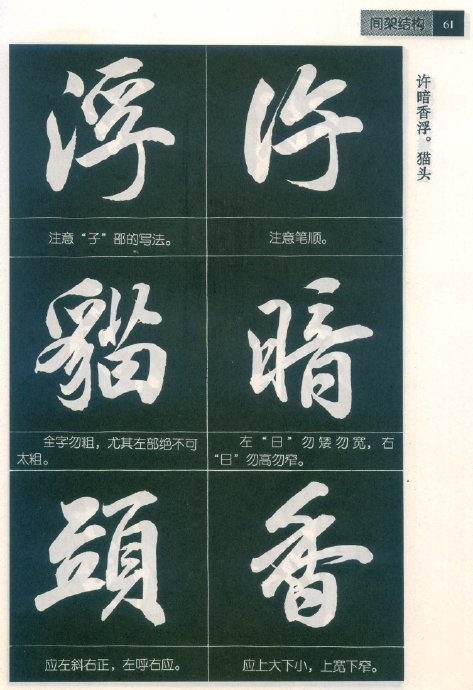 间架结构 61
许暗香浮。猫头
許
注意笔顺。
暗
左“日”勿矮勿宽，右
“日”勿高勿窄。
香
应上大下小，上宽下窄。
浮
注意“子”部的写法。
貓
全字勿粗，尤其左部绝不可
太粗。
頭
应左斜右正，左呼右应。